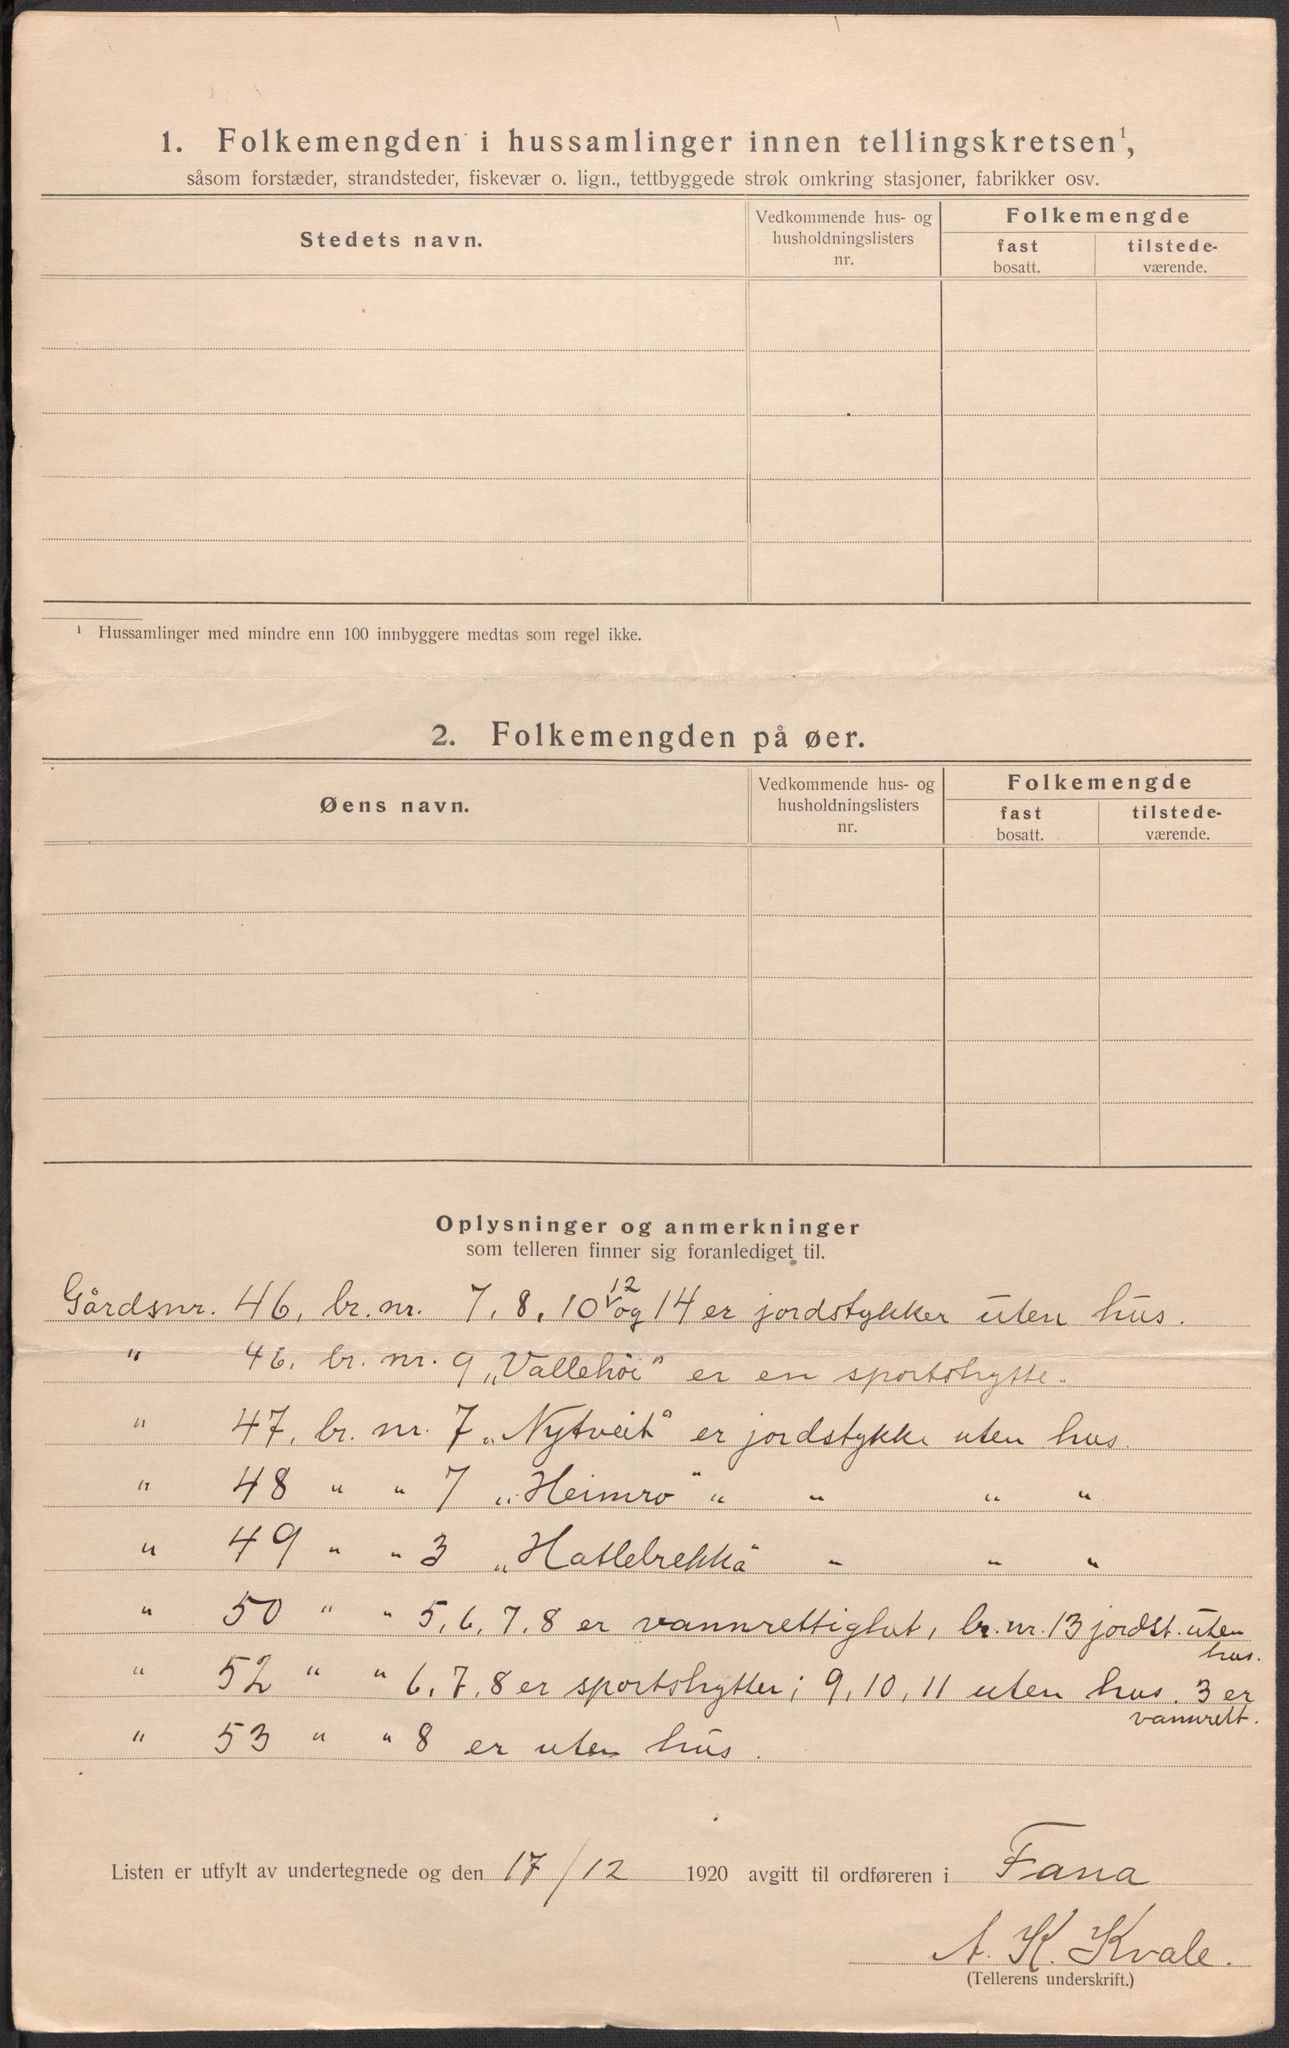 1. Folkemengden i hussamlinger innen tellingskretsen¹,
såsom forstæder, strandsteder, fiskevær o. lign., tettbyggede strøk omkring stasjoner, fabrikker osv.
Stedets navn.
Vedkommende hus- og
husholdningslisters
nr.
Folkemengde
fast
bosatt.
tilstede-
værende.
¹ Hussamlinger med mindre enn 100 innbyggere medtas som regel ikke.
2. Folkemengden på øer.
Øens navn.
Vedkommende hus- og
husholdningslisters
nr.
Folkemengde
fast
bosatt.
tilstede-
værende.
Oplysninger og anmerkninger
som telleren finner sig foranlediget til.
Gårdsnr. 46, br. nr. 7, 8, 10, 12 og 14 er jordstykker uten hus.
" 46, br. nr. 9 „Vallehöi" er en sportshytte.
" 47, br. nr. 7 „Nytveit" er jordstykke uten hus.
" 48 " " 7 „Heimro" " " " "
" 49 " " 3 „Hatlebrekka" " " "
" 50 " " 5, 6, 7, 8 er vannrettighet, br. nr. 13 jordst. uten
hus.
" 52 " " 6, 7, 8 er sportshytter; 9, 10, 11 uten hus. 3 er
vannrett.
" 53 " " 8 er uten hus.
Listen er utfylt av undertegnede og den 17/12 1920 avgitt til ordføreren i Fana
A. K. Kvale.
(Tellerens underskrift.)